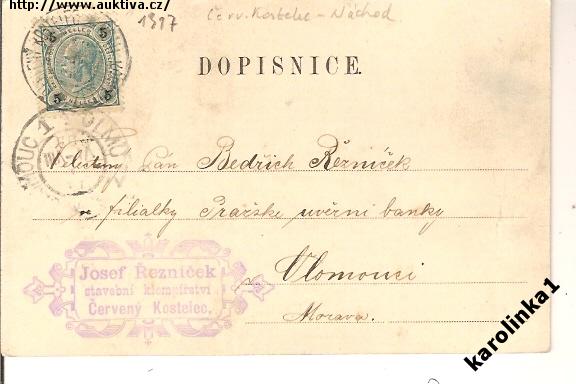 http://www.auktiva.cz/
1897
Červ. Kostelec - Náchod
5 5
DOPISNICE.
OLOMOUC 1
Velectěný Pán Bedřich Řezníček
filialky Pražské úvěrní banky
v Olomouci
Morava.
Josef Řezníček
stavební klempířství
Červený Kostelec.
karolinka1